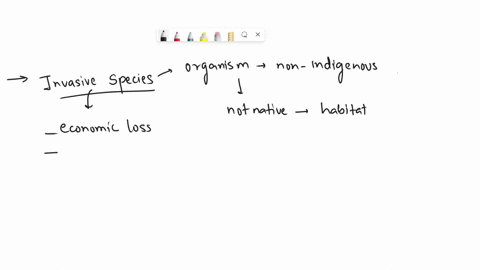 → Invasive Species → organism → non-indigenous
↓
not native → habitat
↓
– economic loss
–